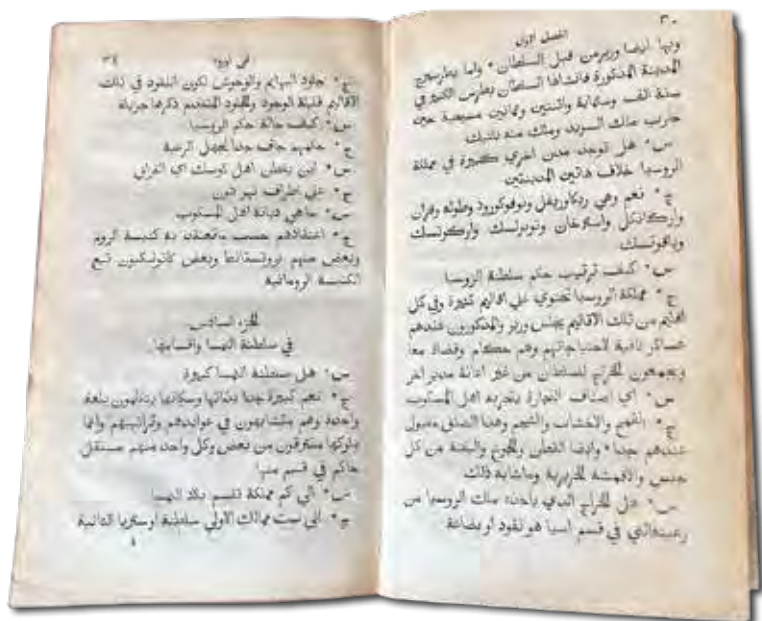 ٣٠
الفصل الاول
وبها ايضا وزير من قبل السلطان * واما بطرسبرج
المدينة المذكورة فانشاها السلطان بطرس الكبير في
سنة الف وستماية واثنتين وثمانين مسيحية حين
حارب ملك السويد وملك منه تلك
س * هل توجد مدن اخري كبيرة في مملكة
الروسيا خلاف هاتين المدينتين
ج * نعم وهي ونوفوكورود وطوله وقزان
واركانكل واستراخان وتوبولسك واركوتسك
وياقوتسك
س * كيف ترتيب حكم سلطنة الروسيا
ج * مملكة الروسيا تحتوي علي اقاليم كثيرة وفي كل
اقليم من تلك الاقاليم يجلس وزير والمذكورون عندهم
عساكر نافية لاحتياجاتهم وهم حكام وقضاة معا
ويجمعون الخراج للسلطان من غير اعانة مدبر اخر
س * اي اصناف التجارة يتجر به اهل المسكوب
ج * بالقمح والاخشاب والفحم وهذا الصنف مقبول
عندهم جدا * وايضا القطن والجوخ والبفتة من كل
جنس والاقمشة الحريرية وماشابه ذلك
س * هل الخراج الذي ياخذه ملك الروسيا من
رعيته التي في قسم اسيا هو نقود او بضاعة
في اوروبا
٣٤
ج * جلود البهايم والوحوش لكون النقود في تلك
الاقاليم قليلة الوجود والجلود المتقدم ذكرها جزيلة
س * كيف حالة حكم الروسيا
ج * حكمهم جاف جدا لجهل الرعية
س * اين يقطن اهل كوسك اي القزاق
ج * علي اطراف نهر الدون
س * ماهي ديانة اهل المسكوب
ج * اعتقادهم حسب ماتعتقد به كنيسة الروم
وبعض منهم بروتستانط وبعض كاتوليكيون تبع
الكنيسة الرومانية
الجزء السادس
في سلطنة النمسا واقسامها
س * هل سلطنة النمسا كبيرة
ج * نعم كبيرة جدا بذاتها وسكانها يتكلمون بلغة
واحدة وهم متشابهون في عوايدهم وتراتيبهم وانما
ملوكها متفرقون من بعض وكل واحد منهم مستقل
حاكم في قسم منها
س * الي كم مملكة تقسم بلاد النمسا
ج * الي ست ممالك الاولي سلطنة اوستريا الثانية
٤